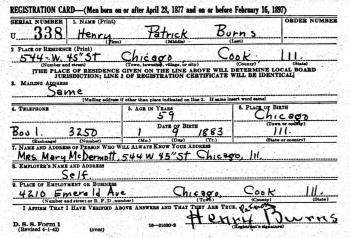 REGISTRATION CARD—(Men born on or after April 28, 1877 and on or before February 16, 1897)
SERIAL NUMBER 1. NAME (Print) ORDER NUMBER
U 338 Henry Patrick Burns
(First) (Middle) (Last)
2. PLACE OF RESIDENCE (Print)
544 W. 45" St Chicago Cook Ill.
(Number and street) (Town, township, village, or city) (County) (State)
[THE PLACE OF RESIDENCE GIVEN ON THE LINE ABOVE WILL DETERMINE LOCAL BOARD
JURISDICTION; LINE 2 OF REGISTRATION CERTIFICATE WILL BE IDENTICAL]
3. MAILING ADDRESS
Same
[Mailing address if other than place indicated on line 2. If same insert word same]
4. TELEPHONE 5. AGE IN YEARS 6. PLACE OF BIRTH
59 Chicago
DATE OF BIRTH (Town or county)
3250 1 9 1883 Ill.
(Exchange) (Number) (Mo.) (Day) (Yr.) (State or country)
7. NAME AND ADDRESS OF PERSON WHO WILL ALWAYS KNOW YOUR ADDRESS
Mrs. Mary McDermott, 544 W 45" St Chicago, Ill.
8. EMPLOYER'S NAME AND ADDRESS
Self
9. PLACE OF EMPLOYMENT OR BUSINESS
4210 Emerald Ave Chicago, Cook Ill.
(Number and street or R. F. D. number) (Town) (County) (State)
I AFFIRM THAT I HAVE VERIFIED ABOVE ANSWERS AND THAT THEY ARE TRUE.
Henry Burns
D. S. S. Form 1
(Revised 4-1-42) (over) (Registrant's signature)